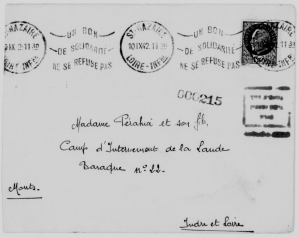 ST NAZAIRE
LOIRE-INFRE
UN BON
DE SOLIDARITÉ
NE SE REFUSE PAS
ST NAZAIRE
10 IX 42
LOIRE-INFRE
UN BON
DE SOLIDARITÉ
NE SE REFUSE PAS
000215
Madame Pérahia et son fils
Camp d'Internement de la Lande
Baraque n° 22.
Monts.
Indre et Loire